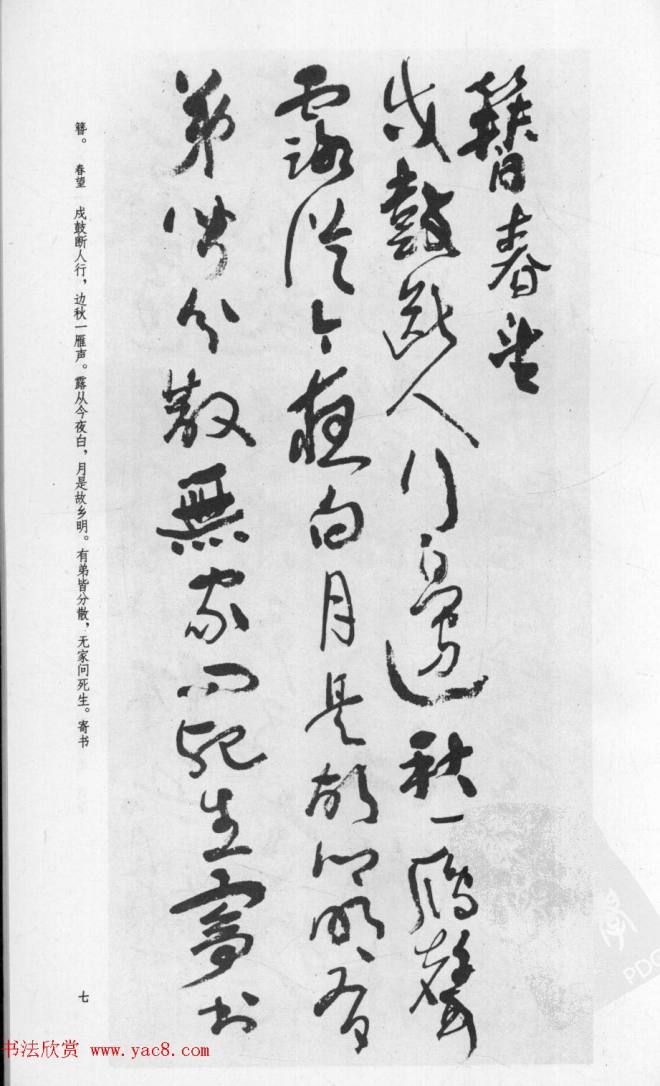 簪春望
戍鼓断人行邊秋一雁聲
露從今夜白月是故鄉明有
弟皆分散無家問死生寄书
簪。 春望 戍鼓断人行，边秋一雁声。露从今夜白，月是故乡明。有弟皆分散，无家问死生。寄书
七
书法欣赏 www.yac8.com
PDG